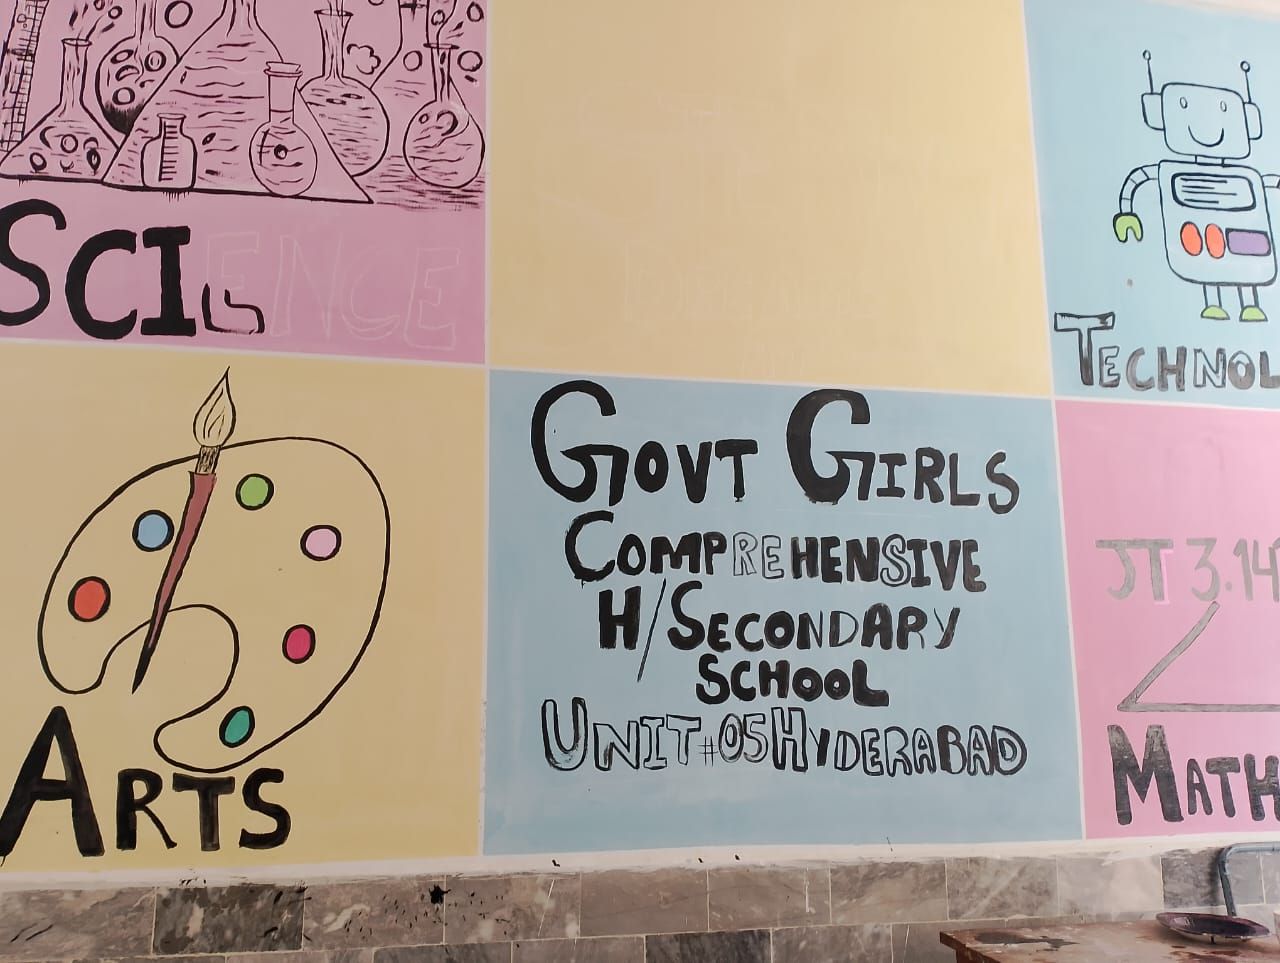 SCIENCE
TECHNOL
GOVT GIRLS
COMPREHENSIVE
H/SECONDARY
SCHOOL
UNIT #05 HYDERABAD
ARTS
3.14
MATH